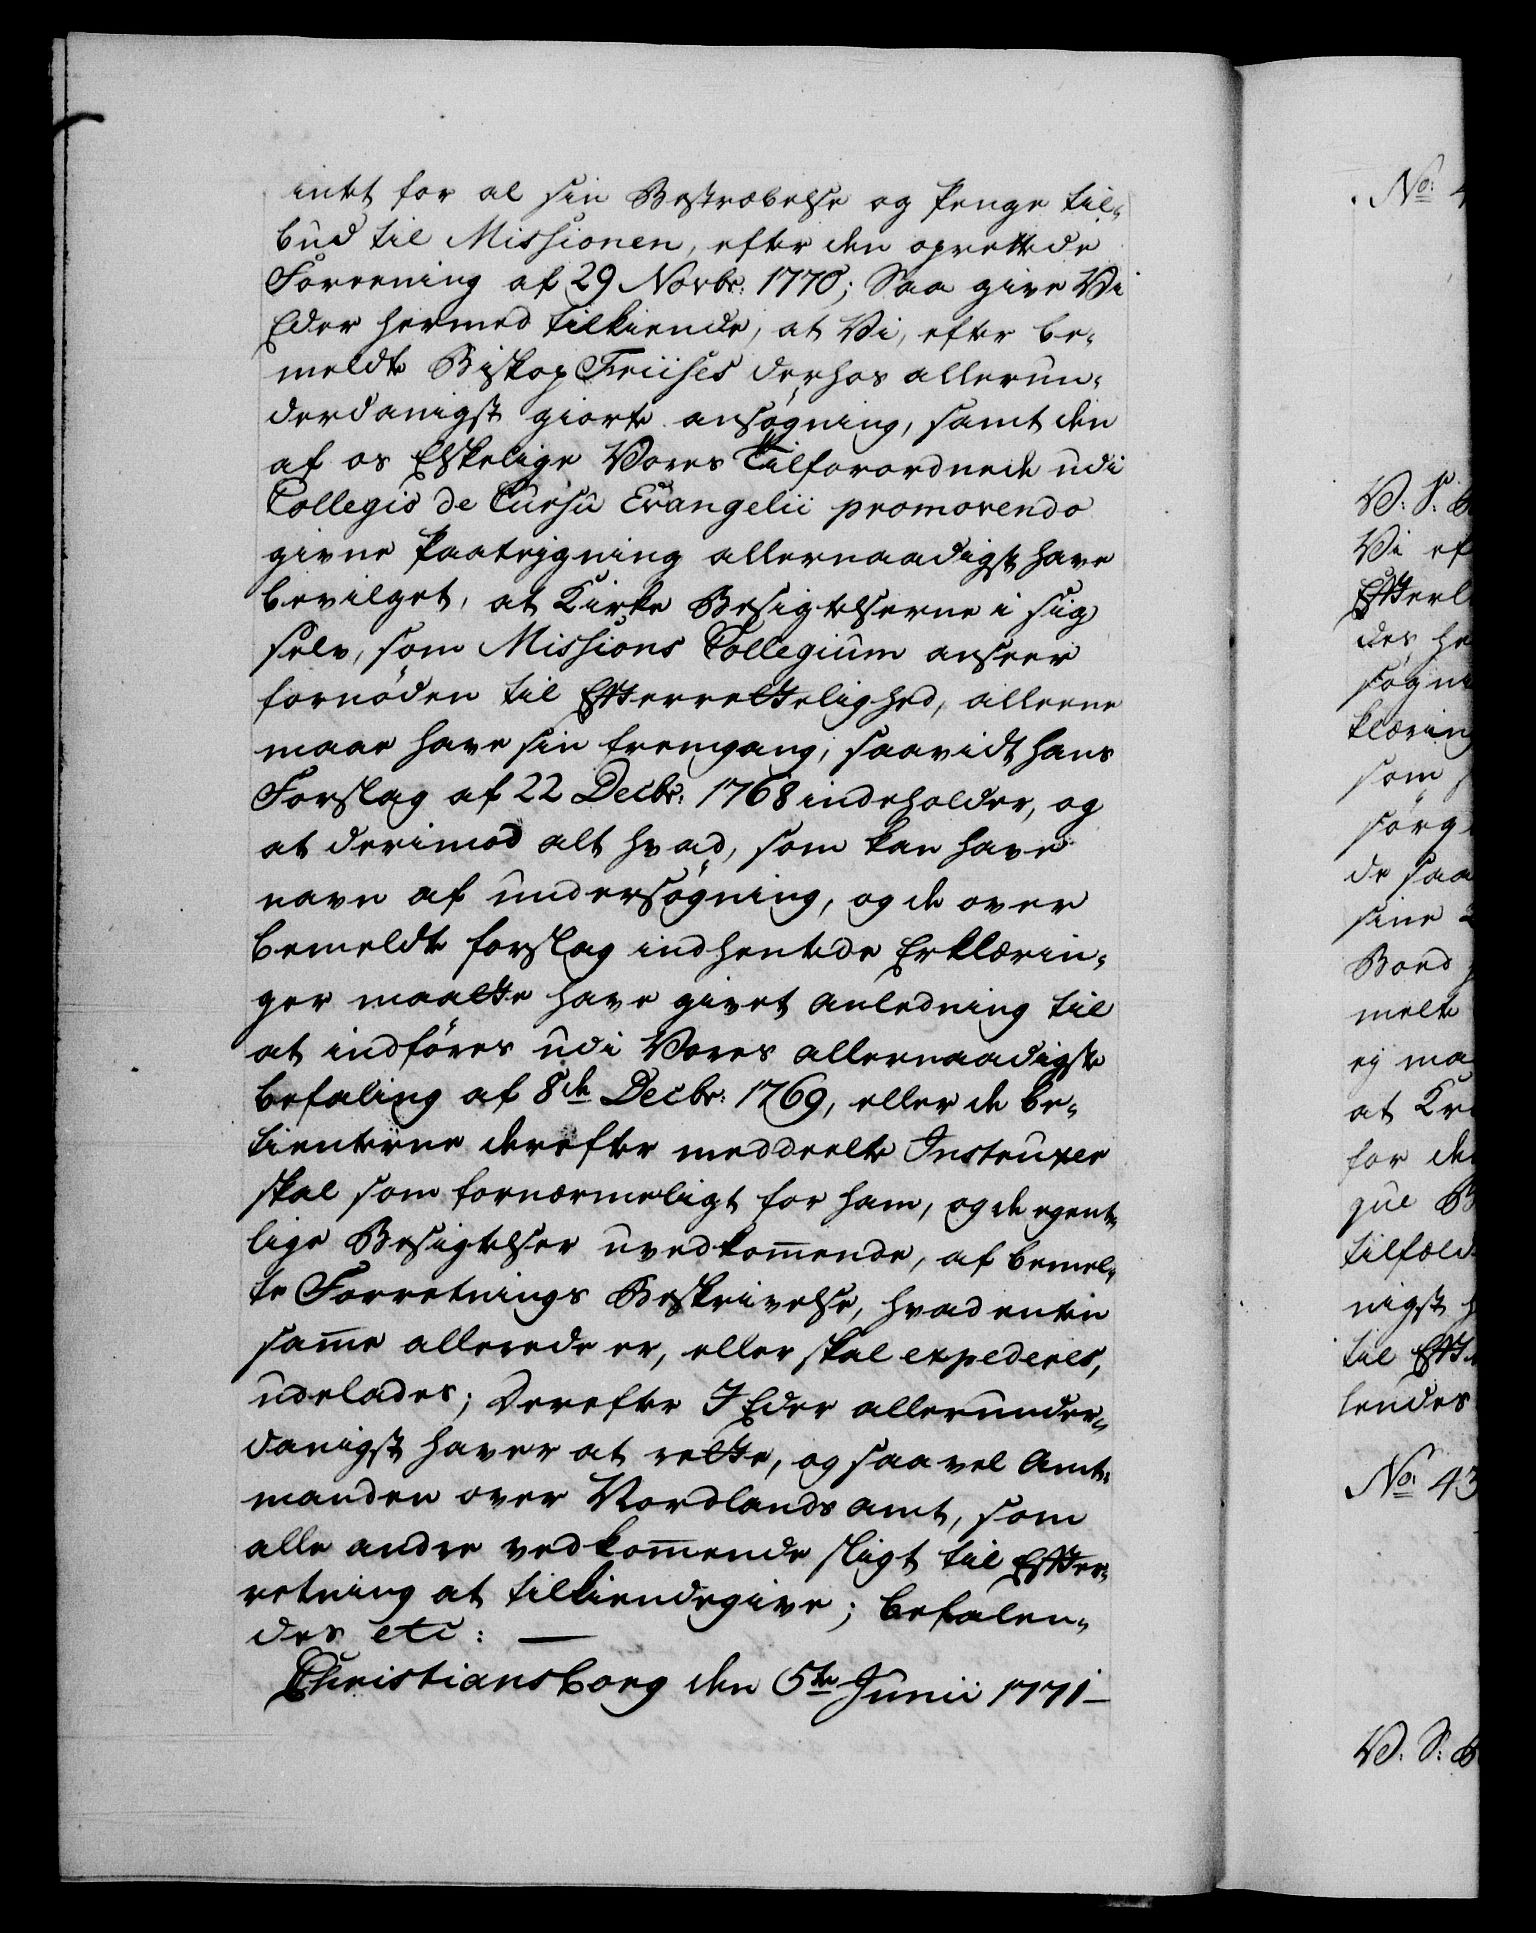 intet for al sin Bestræbelse og Penge til-
bud til Missionen, efter den oprettede
Foreening af 29 Novbr: 1770; Saa give Vi
Eder hermed tilkiende, at Vi, efter be-
meldte Biskop Friises derhos allerun-
derdanigst giorte ansøgning, samt den
af os Elskelige Vores Tilforordnede udi
Collegio de Cursu Evangelii promovendo
givne Paategning allernaadigst have
bevilget, at Kirke Besigtelserne i sig
selv, som Missions Collegium anseer
fornøden til Efterrettelighed, alleene
maae have sin fremgang, saavidt hans
Forslag af 22 Decbr: 1768 indeholder, og
at derimod alt hvad, som kan have
navn af undersøgning, og de over
bemeldte forslag indhentede Erklærin-
ger maatte have givet anledning til
at indføres udi Vores allernaadigste
befaling af 8de Decbr: 1769, eller de be-
tienterne derefter meddeelte Instruxer
skal som fornærmeligt for ham, og de egent-
lige Besigtelser uvedkommende, af bemel-
te Forretnings Beskrivelse, hvad enten
samme allerede er, eller skal expederes,
udelades; Derefter I Eder allerunder-
danigst haver at rette, og saavel Amt-
manden over Nordlands amt, som
alle andre vedkommende sligt til Efter-
retning at tilkiendegive; Befalen-
des etc: —
Christiansborg den 5te Junii 1771 –
No:
V: S:
Vi
Efterl
des
søgni
klæring
som
sørg
de saa
sine
Bord
melte
ej ma
at
for de
tilfæld
nigst
til Eft
lendes
No: 43
V: S: